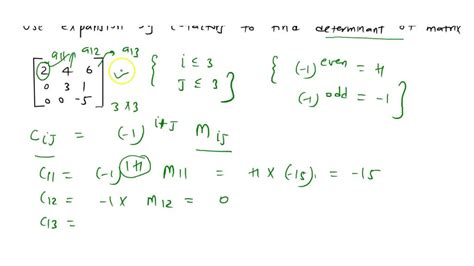 Use expansion by cofactors to find determinant of matrix
a11 a12 a13
2 4 6
0 3 1
0 0 -5
3x3
{ i ≤ 3
J ≤ 3 }
{ (-1)^even = +1
(-1)^odd = -1 }
Cij = (-1)^i+J Mij
C11 = (-1)^1+1 M11 = +1 x (-15) = -15
C12 = -1 x M12 = 0
C13 =